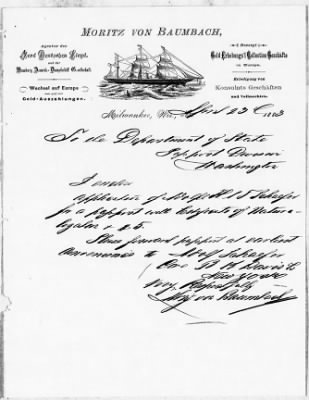 MORITZ VON BAUMBACH,
Agentur des
Nord Deutschen Lloyd,
und der
Hamburg Amerik. Dampfschiff Gesellschaft.
Wechsel auf Europa
und
Geld-Auszahlungen.
Besorgt
Geld Erhebungs & Collections Geschäfte
in Europa.
Erledigung von
Konsulats Geschäften
und Vollmachten.
Milwaukee, Wis., April 23 1883
To the Department of State
Passport Division
Washington
I enclose
application of Adolf Schaefer
for a passport with Certificate of Natura-
lization & $5.
Please forward passport at earliest
convenience to Adolf Schaefer
Care
New York
Very Respectfully
Mor. von Baumbach